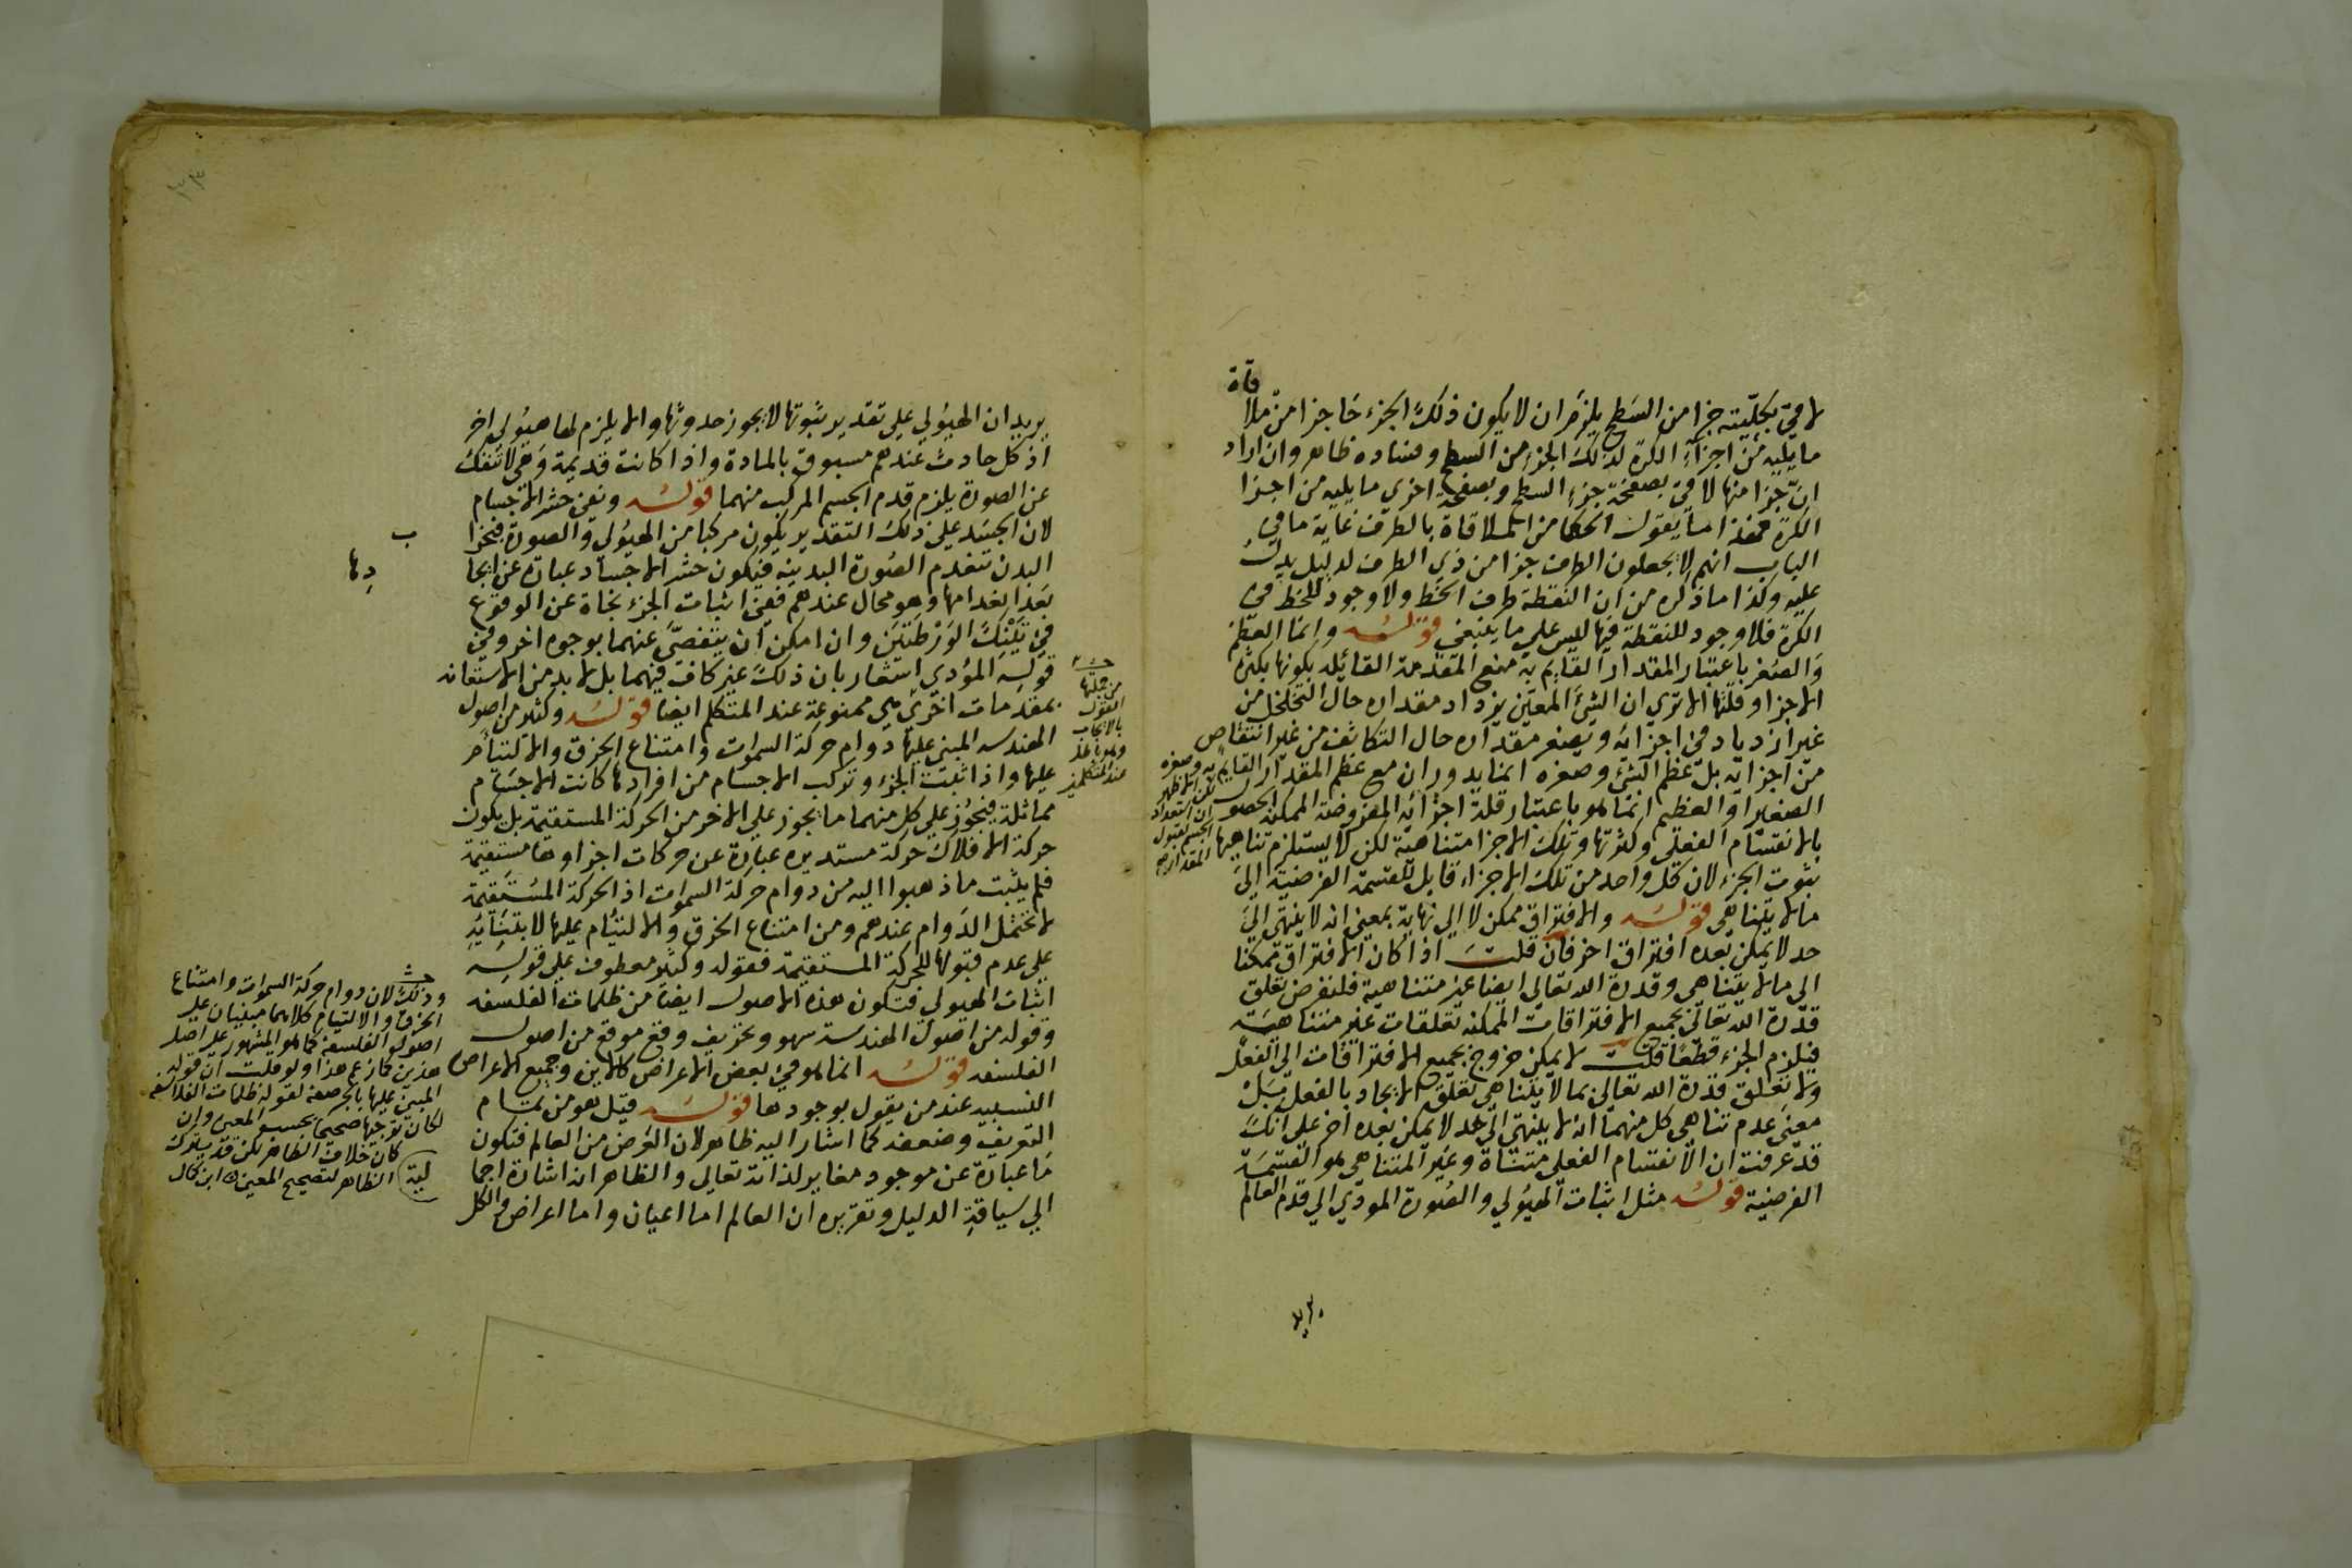 لاقي بكلّيته جزا من السطح يلزم ان لا يكون ذلك الجزء حاجزا من ملا
قاة
ما يليه من اجزاء الكرة لذلك الجزء من السطح وفساده ظاهر وان اراد
انّ جزا منها لاقي بصفحة جزء السطح وبصفحة اخري ما يليه من اجزا
الكرة فهذا ما يقول الحكما من الملاقاة بالطرف غاية ما في
الباب انهم لا يجعلون الطرف جزا من ذي الطرف لدليل يدلّ
عليه وكذا ما ذكره من ان النقطة طرف الخط ولا وجود للخط في
الكرة فلا وجود للنقطة فيها ليس علي ما ينبغي قوله وانما العظم
والصغر باعتبار المقدار القايم به منع المقدمة القائله بكونها بكثرة
الاجزا وقلتها الا تري ان الشئ المعين يزداد مقداره حال التخلخل من
غير ازدياد في اجزائه ويصغر مقداره حال التكاثف من غير انتقاص
من اجزائه بل عظم الشئ وصغره انما يدوران مع عظم المقدار القايم به وصغره
الصغير او العظيم انما هو باعتبار قلة اجزائه المفروضة الممكنة الحصول
بالانقسام الفعلي وكثرتها وتلك الاجزا متناهية لكن لا يستلزم تناهيها
ثبوت الجزء لان كل واحد من تلك الاجزاء قابل للقسمة الفرضية الي
ما لا يتناهي قوله والافتراق ممكن لا الي نهاية بمعني انه لا ينتهي الي
حد لا يمكن بعده افتراق اخر فان قلت اذا كان الافتراق ممكنا
الي ما لا يتناهي وقدرة الله تعالي ايضا غير متناهية فلنفرض تعلق
قدرة الله تعالي بجميع الافتراقات الممكنة تعلقات غير متناهية
فيلزم الجزء قطعا قلت لا يمكن خروج جميع الافتراقات الي الفعل
ولا تعلق قدرة الله تعالي بما لا يتناهي تعلق الايجاد بالفعل بل
معني عدم تناهي كل منهما انه لا ينتهي الي حد لا يمكن بعده اخر علي انك
قد عرفت ان الانقسام الفعلي متناه وغير المتناهي هو القسمة
الفرضية قوله مثل اثبات الهيولي والصورة المودي الي قدم العالم
يريد ان الهيولي علي تقدير ثبوتها لا يجوز حدوثها والا يلزم لها هيولي اخر
اذ كل حادث عندهم مسبوق بالمادة واذا كانت قديمة وهي لا تنفك
عن الصورة يلزم قدم الجسم المركب منهما قوله ونفي حشر الاجسام
لان الجسد علي ذلك التقدير يكون مركبا من الهيولي والصورة فبخرا
ب
البدن تنعدم الصورة البدنيه فيكون حشر الاجساد عبارة عن ايجا
دها
بعد انعدامها وهو محال عندهم ففي اثبات الجزء نجاة عن الوقوع
في تينك الورطتين وان امكن ان يتفصي عنهما بوجوه اخر وفي
قوله المؤدي اشعار بان ذلك غير كاف فيهما بل لا بد من الاستعانه
بمقدمات اخري هي ممنوعة عند المتكلم ايضا قوله وكثير من اصول
الهندسه المبني عليها دوام حركة السموات وامتناع الخرق والالتيام
عليها واذا ثبت الجزء وتركب الاجسام من افرادها كانت الاجسام
مماثلة فيجوز علي كل منهما ما يجوز علي الاخر من الحركة المستقيمة بل يكون
حركة الافلاك حركة مستديره عبارة عن حركات اجزاوها مستقيمة
فلم يثبت ما ذهبوا اليه من دوام حركة السموات اذ الحركة المستقيمة
لا تحتمل الدوام عندهم ومن امتناع الخرق والالتيام عليها لابتنائه
علي عدم قبولها للحركة المستقيمة فقوله وكثير معطوف علي قوله
اثبات الهيولي فتكون هذه الاصول ايضا من ظلمات الفلسفه
وقوله من اصول الهندسة سهو وتحريف وقع موقع من اصول
الفلسفه قوله انما هو في بعض الاعراض كالاين وجميع الاعراض
النسبيه عند من يقول بوجودها قوله قيل هو من تمام
التعريف وضعفه كما اشار اليه ظاهر لان العرض من العالم فتكون
ما عبارة عن موجود مغاير لذاته تعالي والظاهر انه اشارة اجما
لية
الي سياقة الدليل وتقريره ان العالم اما اعيان واما اعراض والكل
من جملتها
القول
بالايجاب
عند المتكلمين
وذلك لان دوام حركة السموات وامتناع
الخرق والالتيام كلاهما مبنيان علي
اصول الفلسفة كما هو المشهور علي اصل
لكان توجيها صحيحا بحسب المعني وان
كان خلاف الظاهر لكن قد يترك
الظاهر لتصحيح المعني ابن كمال